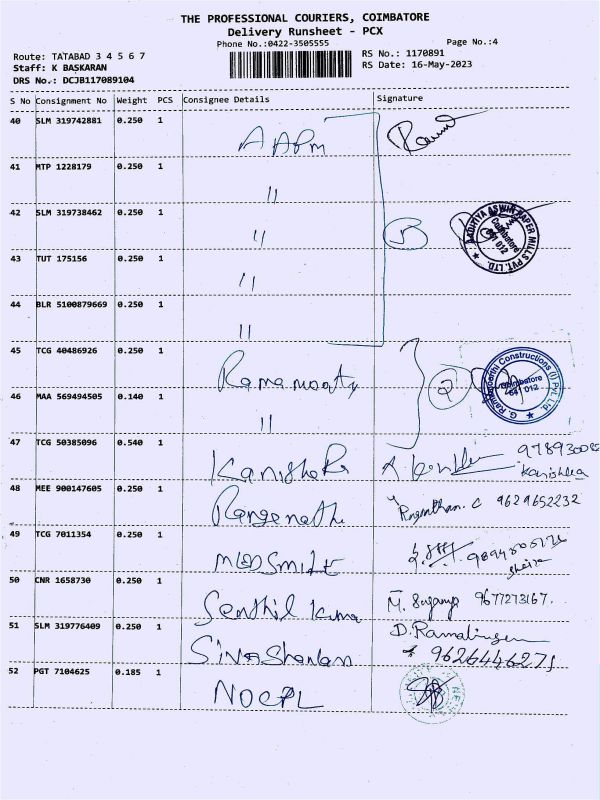 THE PROFESSIONAL COURIERS, COIMBATORE
Delivery Runsheet - PCX
Phone No.:0422-3505555
Page No.:4
Route: TATABAD 3 4 5 6 7
RS No.: 1170891
Staff: K BASKARAN
RS Date: 16-May-2023
DRS No.: DCJB117089104
S No Consignment No Weight PCS Consignee Details Signature
40 SLM 319742881 0.250 1 AAPM
41 MTP 1228179 0.250 1 "
42 SLM 319738462 0.250 1 " 5
AADITIYA ASWIN PAPER MILLS PVT. LTD.
Coimbatore
641 012
43 TUT 175156 0.250 1 "
44 BLR 5100879669 0.250 1 "
45 TCG 40486926 0.250 1 Ramamoorty 2
Constructions (I) Pvt. Ltd.
Coimbatore
641 012
46 MAA 569494505 0.140 1 "
47 TCG 50385096 0.540 1 Kanishka
Kanishka
48 MEE 900147605 0.250 1 Ranganath Ranganathan. C 9629652232
49 TCG 7011354 0.250 1
50 CNR 1658730 0.250 1 Senthil Kumar M. 9677273167.
51 SLM 319776409 0.250 1 Sivashankar D. Ramalingam
9626446275
52 PGT 7104625 0.185 1 NOCPL